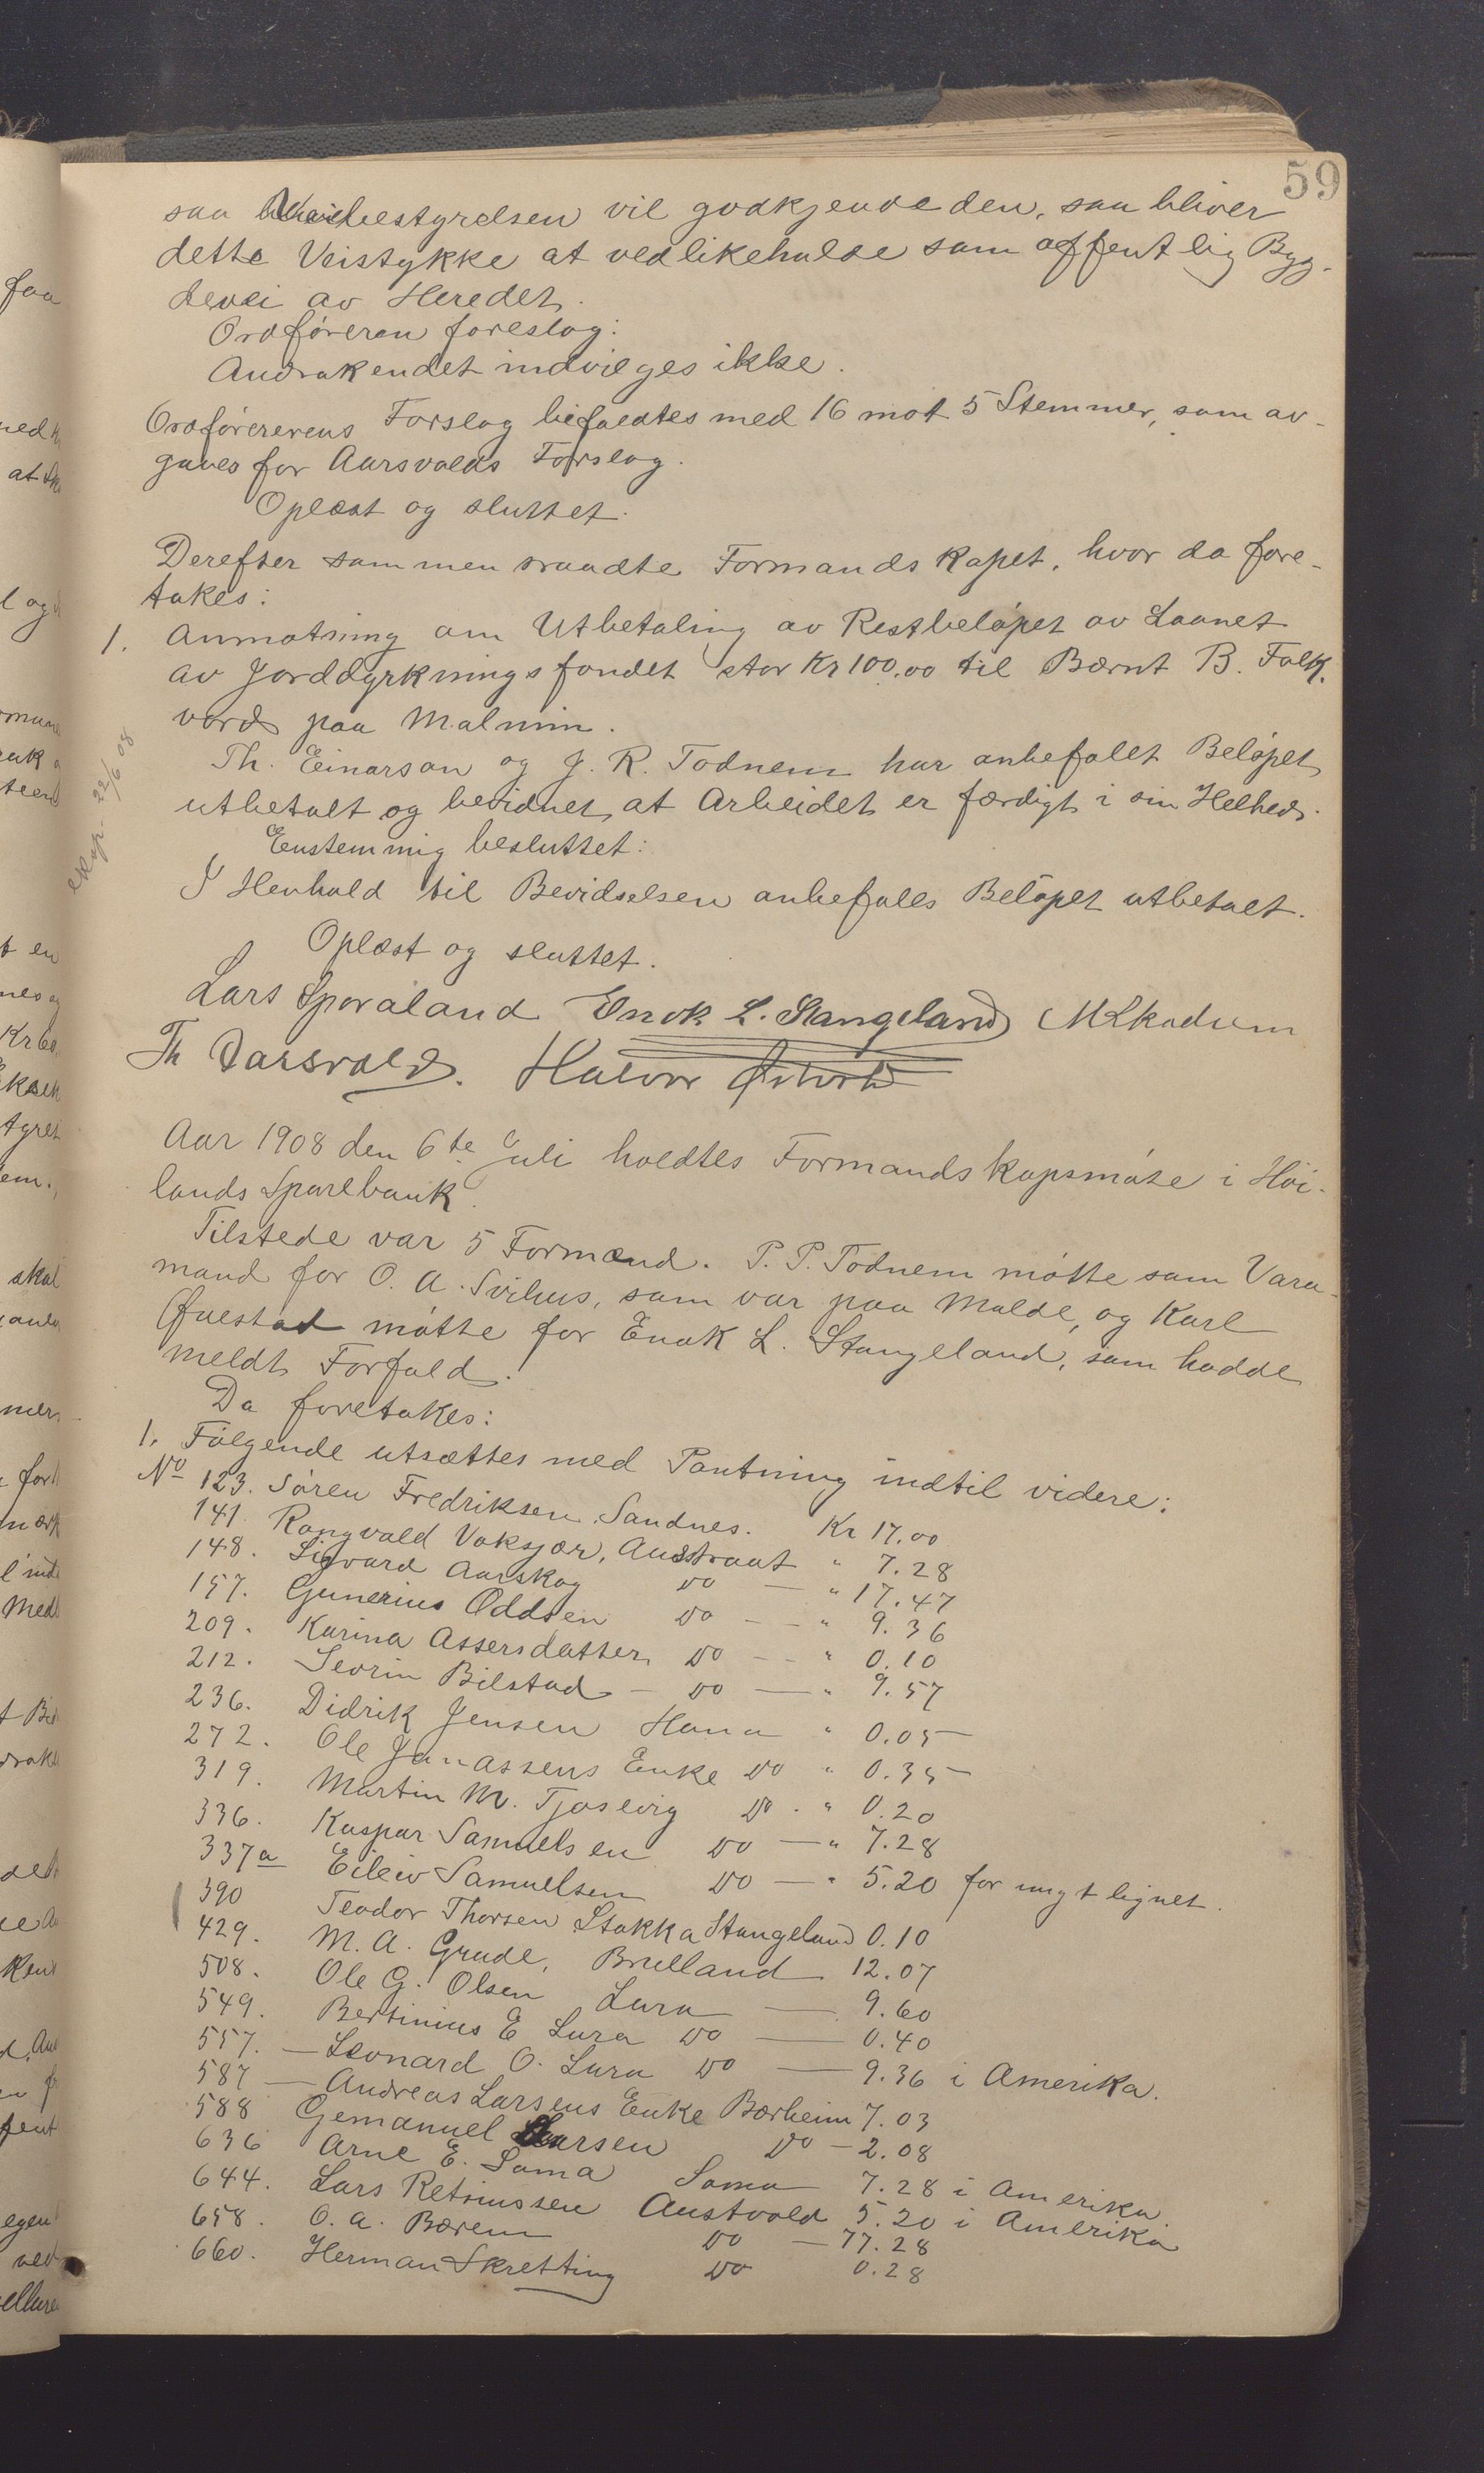 59
saa Veibestyrelsen vil godkjende den, saa bliver
dette Veistykke at vedlikeholde som offentlig Byg-
devei av Heredet.
Ordføreren foreslog:
Andrakendet indvilges ikke.
Ordførererens Forslag bifaldtes med 16 mot 5 Stemmer, som av-
gaves for Aarsvolds Forslag.
Oplæst og sluttet.
Derefter sammen traadte Formandskapet, hvor da fore-
takes:
1. Anmotning om Utbetaling av Restbeløpet av Laanet
av Jorddyrkningsfondet stor Kr 100.00 til Bærnt B. Folk-
vord paa Malmin.
Th. Einarson og J. R. Todnem har anbefalet Beløpet
utbetalt og bevidnet, at Arbeidet er færdigt i sin Helhed.
eksp. 22/6 08
Enstemmig besluttet:
I Henhold til Bevidselsen anbefales Beløpet utbetalt.
Oplæst og sluttet.
Lars Sporaland Enok L. Stangeland M Skadsem
Th Aarsvold. Halvor
Aar 1908 den 6te Juli holdtes Formandskapsmøte i Høi-
lands Sparebank.
Tilstede var 5 Formænd. P. P. Todnem møtte som Vara-
mand for O. A. Svihus, som var paa Molde, og Karl
Øvestad møtte for Enok L. Stangeland, som hadde
meldt Forfald.
Da foretakes:
1. Følgende utsættes med Pantning indtil videre:
No 123. Søren Fredriksen Sandnes. Kr 17.00
141. Rangvald Vaksjær, Austraat " 7.28
148. Sigvard Aarskog do — " 17.47
157. Gunerius Oddsen do — " 9.36
209. Karina Assersdatter do — " 0.10
212. Sevrin Bilstad — do — " 9.57
236. Didrik Jensen Hana " 0.05
272. Ole Janassens Enke do " 0.35
319. Martin M. Tjosevig do. " 0.20
336. Kaspar Samuelsen do — " 7.28
337a Eileiv Samuelsen do — " 5.20 for meget lignet.
390 Teodor Thorsen Stokka Stangeland 0.10
429. M. A. Grude, Brulland 12.07
508. Ole G. Olsen Lura — 9.60
549. Bertinius E Lura do — 0.40
557. — Leonard O. Lura do — 9.36 i Amerika.
587 — Andreas Larsens Enke Bærheim 7.03
588 Gemanuel Larsen do — 2.08
636 Arne E. Soma Soma 7.28 i Amerika.
644. Lars Retniussen Austvold 5.20 i Amerika
658. O. A. Bærem do — 77.28
660. Herman Skretting do 0.28